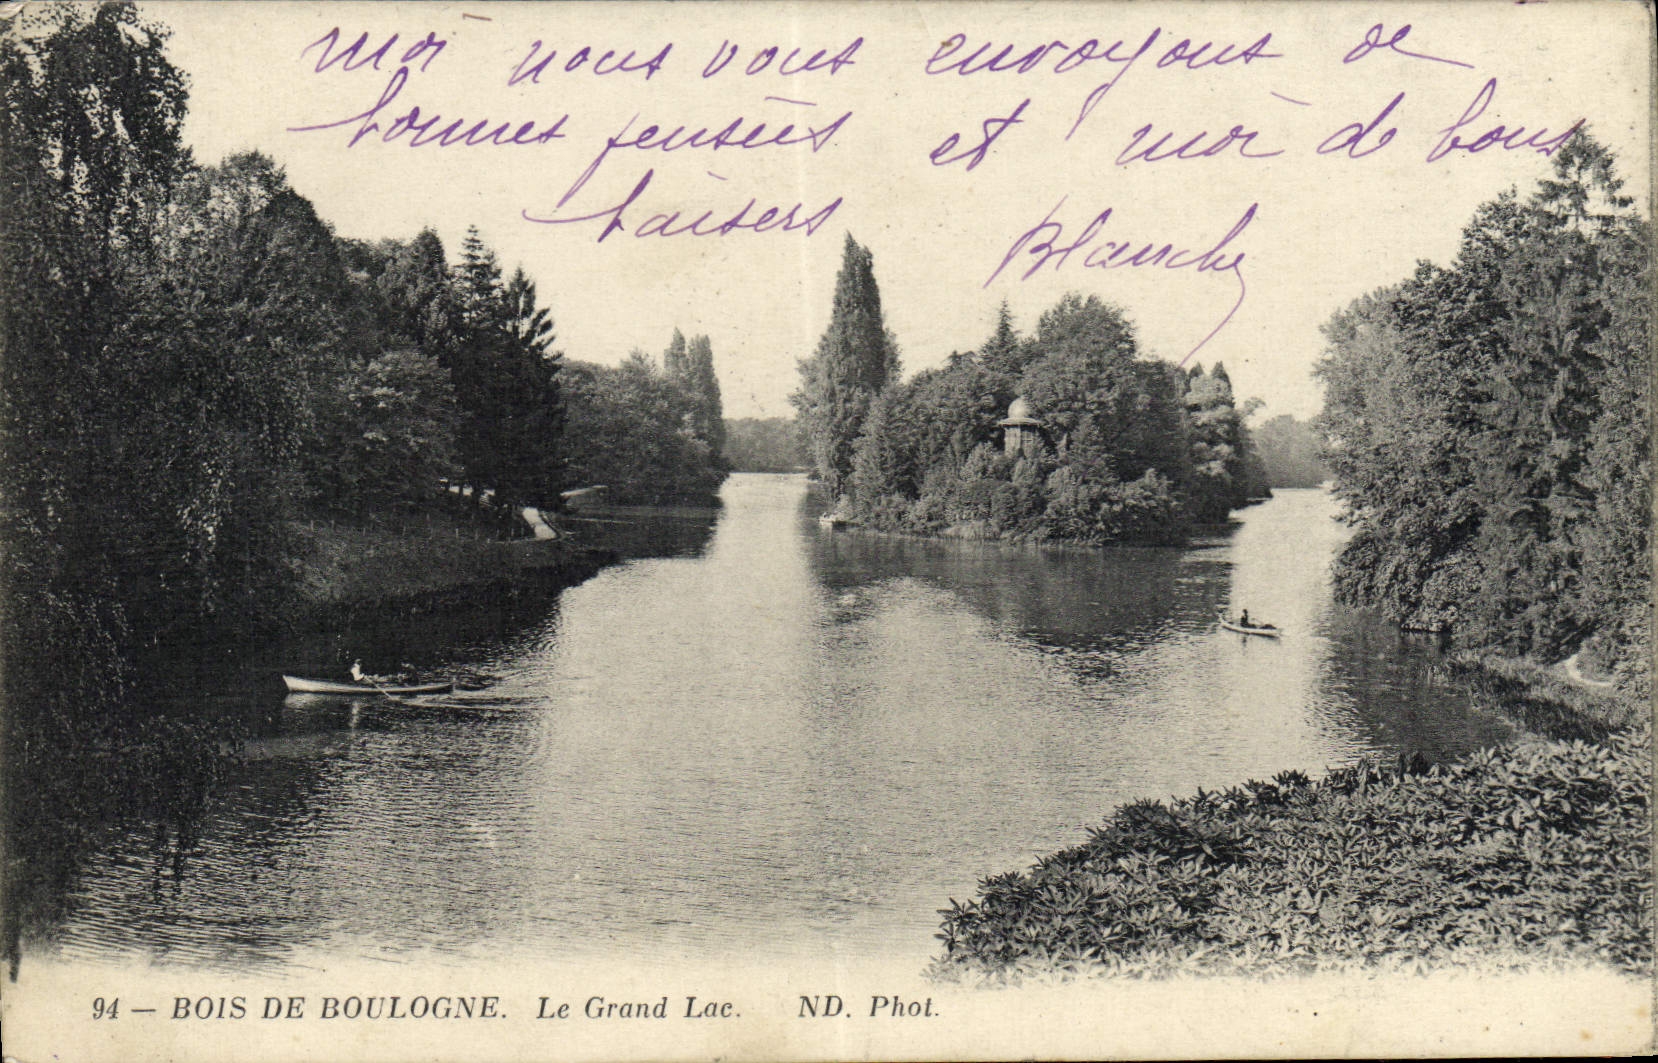 moi nous vous envoyons de
bonnes pensées et moi de bons
baisers
Blanche
94 — BOIS DE BOULOGNE. Le Grand Lac. ND. Phot.